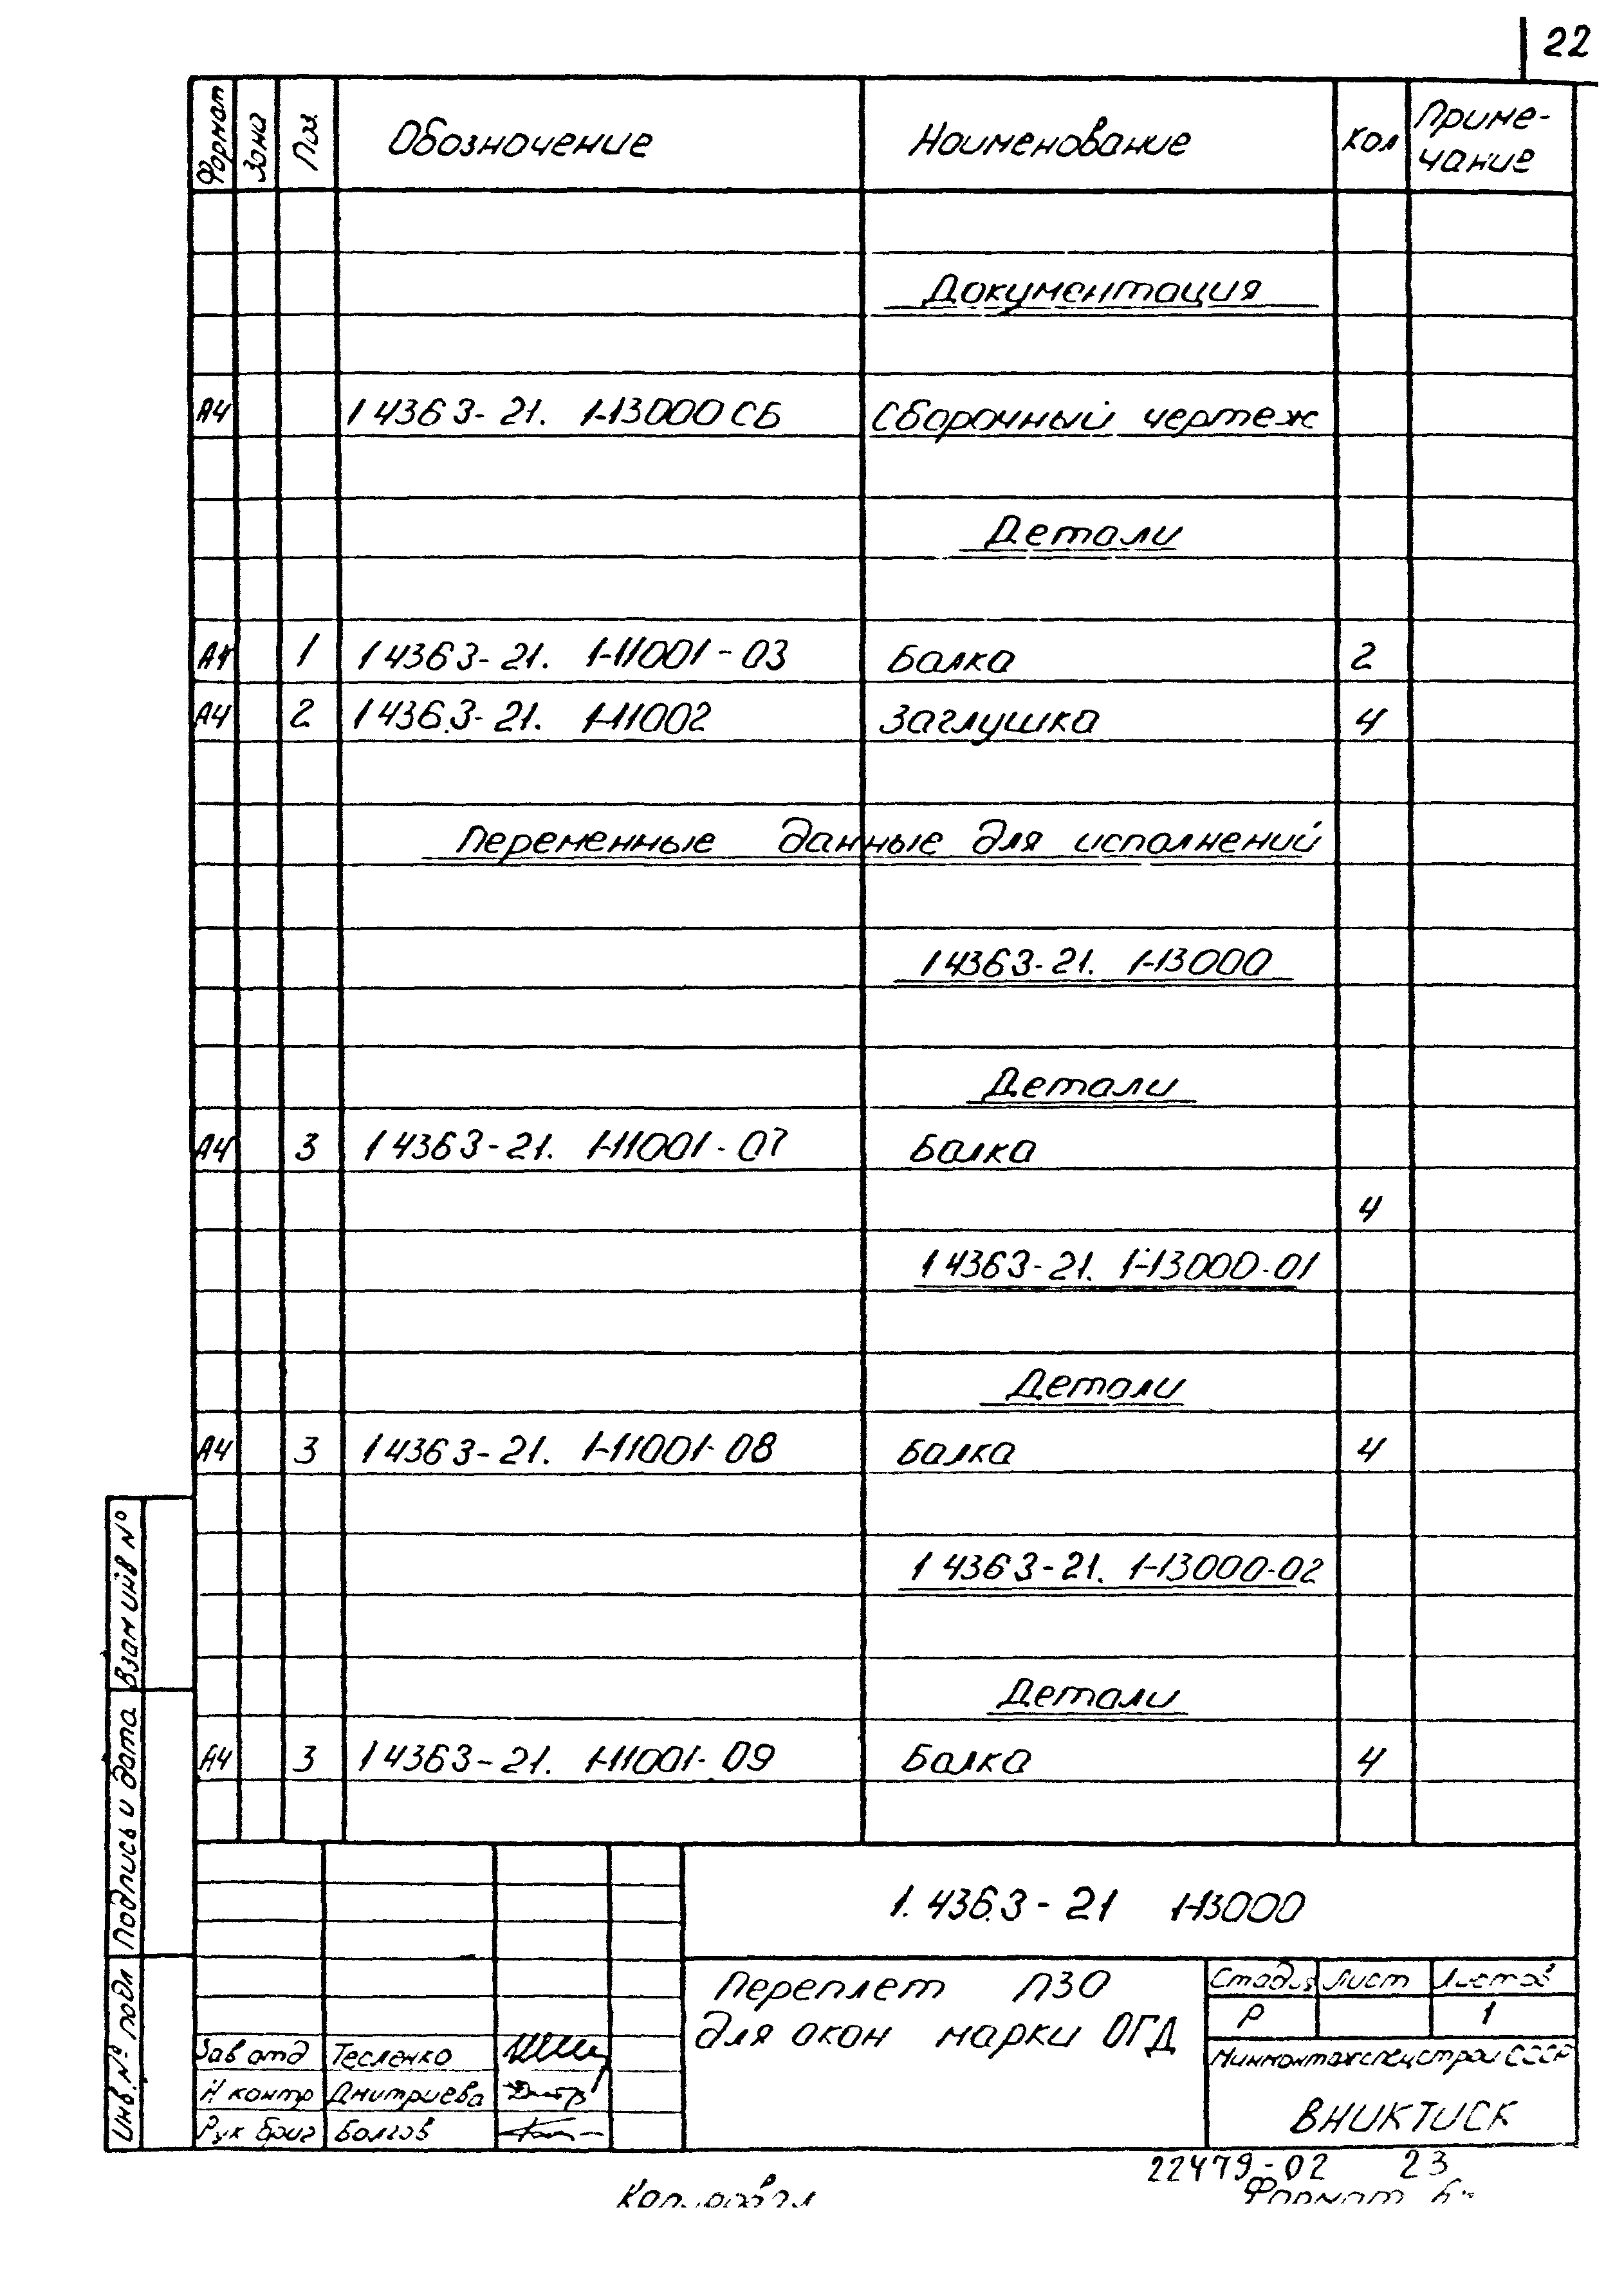 22
Формат Зона Поз. Обозначение Наименование Кол Приме-
чание
Документация
А4 1 4363-21. 1-13000 СБ Сборочный чертеж
Детали
А4 1 1 4363-21. 1-11001-03 Балка 2
А4 2 1 436.3-21. 1-11002 Заглушка 4
Переменные данные для исполнений
1 4363-21. 1-13000
Детали
А4 3 1 4363-21. 1-11001-07 Балка
4
1 4363-21. 1-13000-01
Детали
А4 3 1 4363-21. 1-11001-08 Балка 4
1 4363-21. 1-13000-02
Детали
А4 3 1 4363-21. 1-11001-09 Балка 4
Взам инв №
Подпись и дата
Инв. № подл
1. 436.3-21 1-13000
Переплет П30
для окон марки ОГД
Стадия Лист Листов
Р 1
Минмонтажспецстрой СССР
ВНИКТИСК
Зав отд Тесленко
Н контр Дмитриева
Рук бриг Болгов
22479-02 23
Копировал Формат